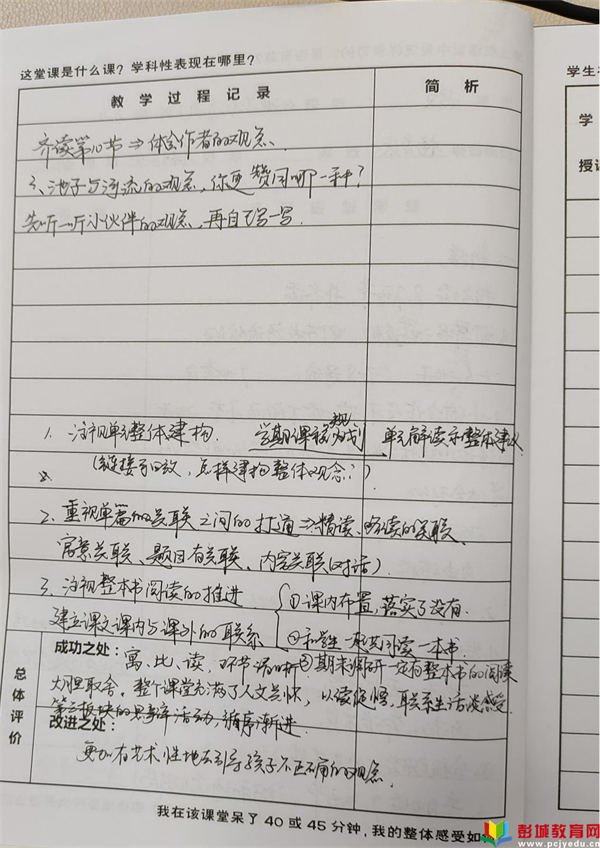 这堂课是什么课？学科性表现在哪里？
教 学 过 程 记 录
简 析
齐读第10节⇒体会作者的观点.
三、池子与河流的观点，你更赞同哪一种？
先听一听小伙伴的观点，再自己写一写.
1. 注视单元整体建构. 学期课程规划 单元解读示整体建议
(链接与回放，怎样建构整体观念？)
2. 重视单篇的关联之间的打通⇒精读、略读的关联、
寓意关联、题目有关联、内容关联(对话).
3. 注视整本书阅读的推进 ①课内布置，落实了没有.
建立课文课内与课外的联系 ②和学生一起共读一本书.
③期末调研一定有整本书的阅读
总体评价
成功之处：寓、比、读、环节清晰
大胆取舍，整个课堂充满了人文关怀，以读促悟，联系生活谈感受
第三板块的思辨活动，循序渐进.
改进之处：
更加有艺术性地去引导孩子不正确的观点.
我在该课堂呆了 40 或 45 分钟，我的整体感受如
学生
学
授课
彭城教育网
www.pcjyedu.cn